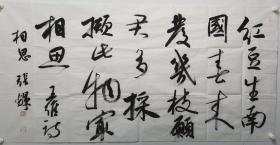 红豆生南
國春来
發幾枝願
君多採
撷此物最
相思 王維诗
相思 張